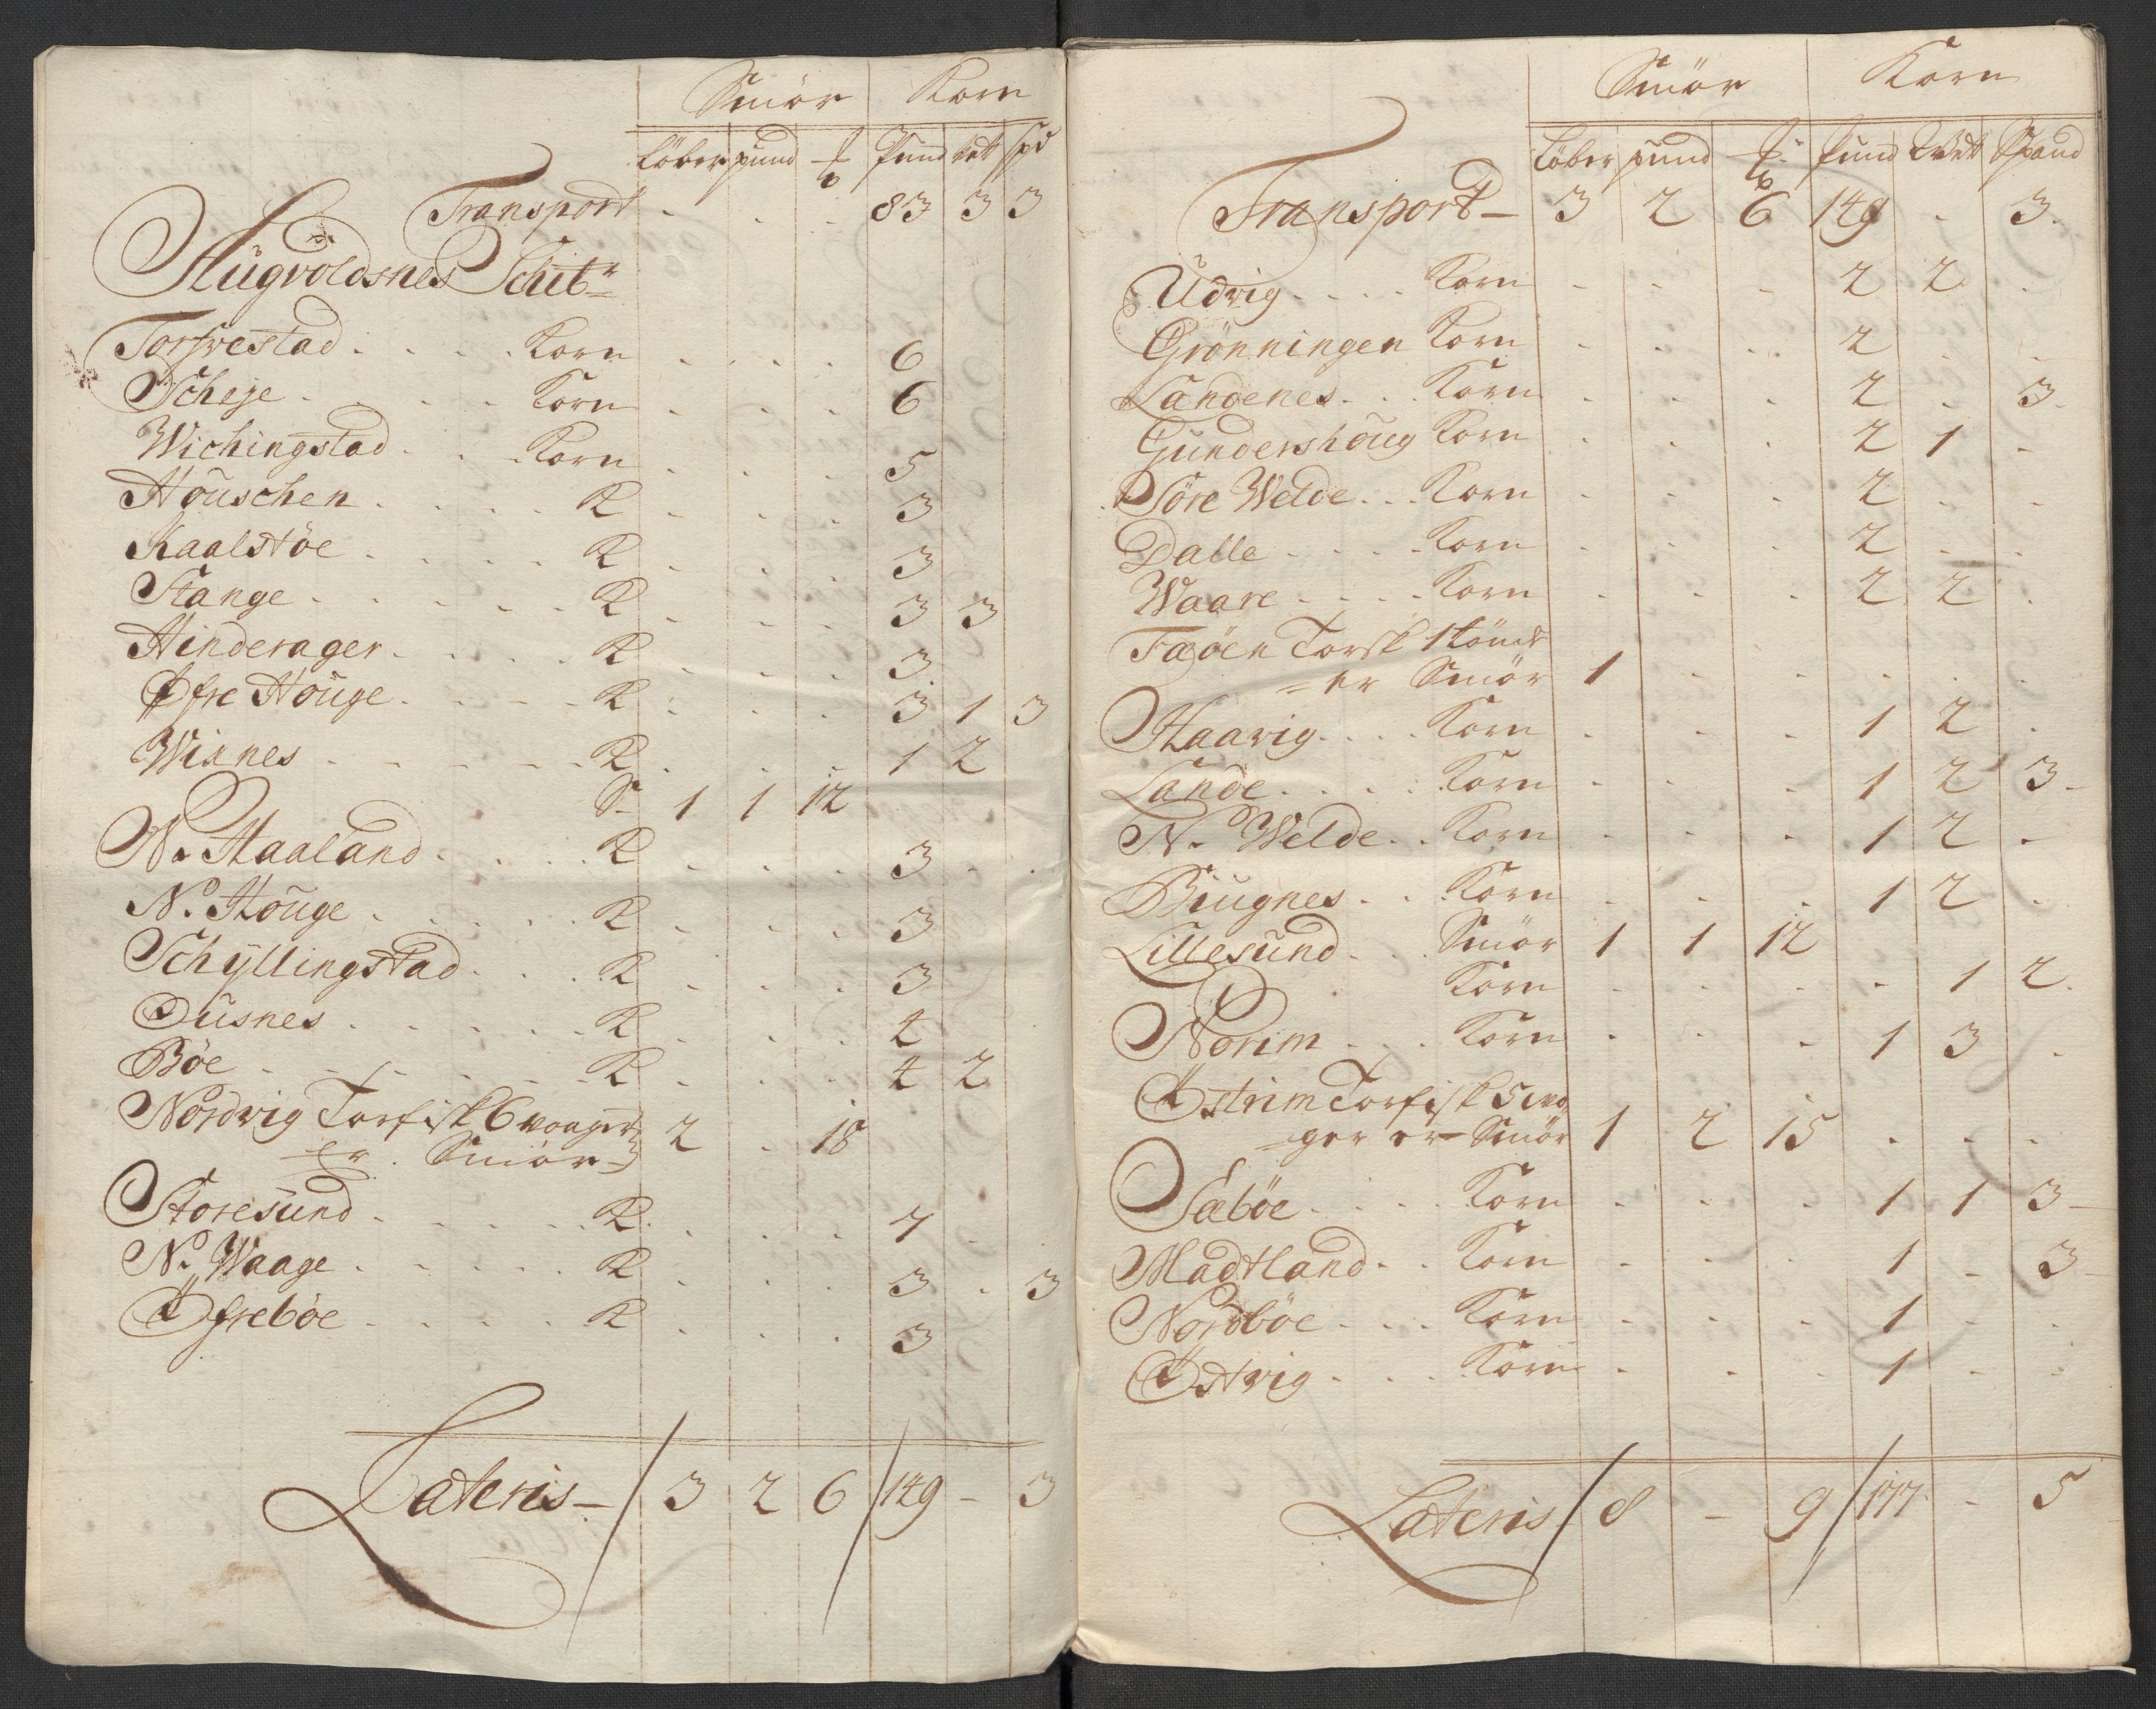 Smör Korn
Löber pund ℔ Pund Vett Spd
Transport . . . 83 3 3
Augvoldsnes Schibr
Torfvestad . . . . Korn . . . 6
Scheje . . . . Korn . . . 6
Wichingstad . . . Korn . . . 5
Houschen . . . . K . . . 3
Kaalstöe . . . . K . . . 3
Stange . . . . . K . . . 3 3
Hinderager . . . . K . . . 3
Öfre Houge . . . . K . . . 3 1 3
Wixnes . . . . . K . . . 1 2
S. 1 1 12
N. Haaland . . . . K . . . 3 . .
N. Houge . . . . . K . . . 3
Schyllingstad . . . K . . . 3
Ousnes . . . . . K . . . 4
Böe . . . . . . K . . . 4 2
Nordvig Torfisk 6 voager
er . Smör 2 . 18
Storesund . . . . . K . . . 7 .
N. Waage . . . . . K . . . 3 . 3
Öfreböe . . . . K . . . 3
Lateris – 3 2 6 149 – 3
Smör Korn
Löber pund ℔ pund Vett Spand
Transport – 3 2 6 149 . 3.
Udvig . . . . Korn . . . 2 2 .
Grönningen Korn . . . 2 . .
Sandenes . . . Korn . . . 2 . 3.
Gundershoug Korn . . . 2 1 .
Söre Welde . . . Korn . . . 2 . .
Dalle . . . . Korn . . . 2 . .
Waare . . . . Korn . . . 2 2 .
Fæöen Torsk 1 tönde
= er Smör 1 . . . . .
Haavig . . . . Korn . . . 1 2 .
Sande . . . . Korn . . . 1 2 3 -
N. Welde . . Korn . . . 1 2 -
Biugnes . . Korn . . . 1 2 .
Lillesund . . . Smör 1 1 12
Korn . . . . 1 2.
Norim . . . Korn . . . 1 3 .
Östrim Torfisk 5 vo
= ger er Smör 1 2 15 . . .
Sæböe . . . . Korn . . . 1 1 3 -
Madtland . . Korn . . . 1 - 3 -
Nordböe . . . Korn . . . 1 . .
Östvig . . . Korn . . . 1 . .
Lateris – 8 – 9 177 - 5